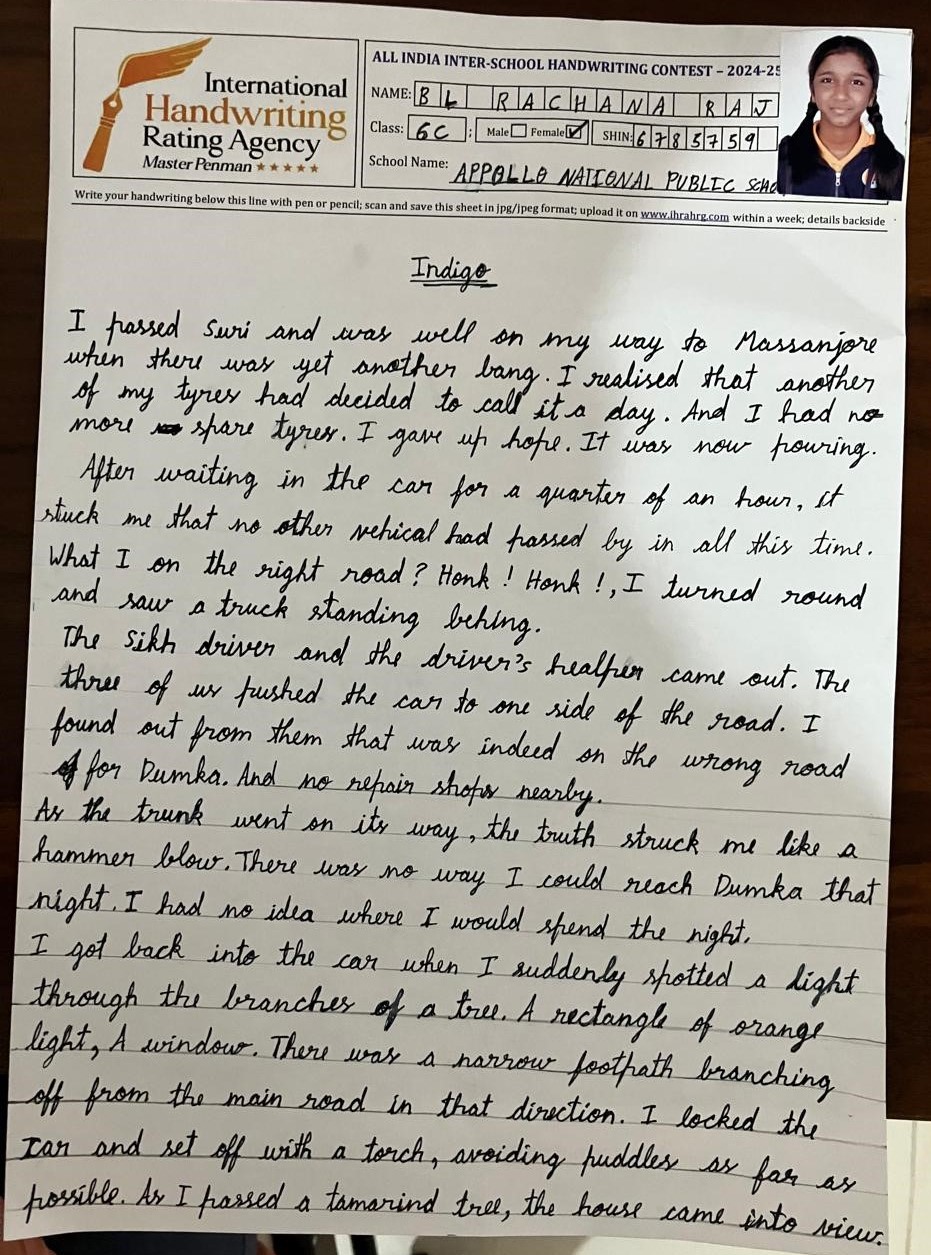 International
Handwriting
Rating Agency
Master Penman ★★★★★
ALL INDIA INTER-SCHOOL HANDWRITING CONTEST – 2024-25
NAME: BL RACHANA RAJ
Class: 6C ; Male Female ☑ SHIN: 6785759
School Name: APPOLLO NATIONAL PUBLIC SCHO
Write your handwriting below this line with pen or pencil; scan and save this sheet in jpg/jpeg format; upload it on www.ihrahrg.com within a week; details backside
Indigo
I passed Suri and was well on my way to Massanjore
when there was yet another bang. I realised that another
of my tyres had decided to call it a day. And I had no
more spare tyres. I gave up hope. It was now pouring.
After waiting in the car for a quarter of an hour, it
stuck me that no other vehical had passed by in all this time.
What I on the right road? Honk! Honk!, I turned round
and saw a truck standing behing.
The Sikh driver and the driver's healper came out. The
three of us pushed the car to one side of the road. I
found out from them that was indeed on the wrong road
for Dumka. And no repair shops nearby.
As the trunk went on its way, the truth struck me like a
hammer blow. There was no way I could reach Dumka that
night. I had no idea where I would spend the night.
I got back into the car when I suddenly spotted a light
through the branches of a tree. A rectangle of orange
light, A window. There was a narrow footpath branching
off from the main road in that direction. I locked the
car and set off with a torch, avoiding puddles as far as
possible. As I passed a tamarind tree, the house came into view.